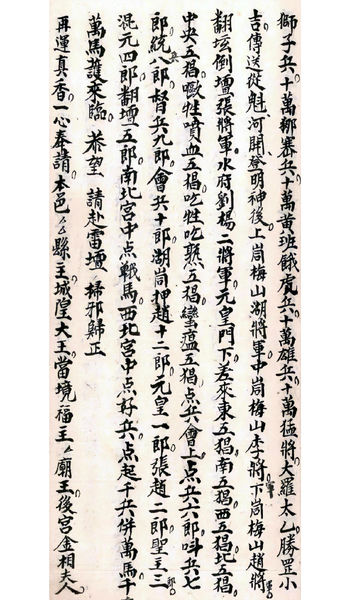 獅子兵十萬鄒審兵十萬黄班餓虎兵十萬雄兵十萬猛將大羅太乙勝罡小
吉傳送從魁河開登明神後上峝梅山湖將軍中峝梅山李將軍下峝梅山趙將軍
翻坛倒壇張將軍水府劉楊二將軍元皇門下差來東五猖南五猖西五猖北五猖
中央五猖噉牲噴血五猖吃牲吃熟五猖蠻瘟五猖点兵會上点兵六郎呌兵七
郎統兵八郎督兵九郎會兵十郎湖峝押趙十二郎元皇一郎張趙二郎聖主三郎
混元四郎翻壇五郎南北宮中点戰馬西北宮中点好兵点起千兵併萬馬千
萬馬護來臨恭望請赴雷壇掃邪歸正
再運真香一心奉請本邑厶厶縣主城隍大王當境福主厶廟王後宮金相夫人